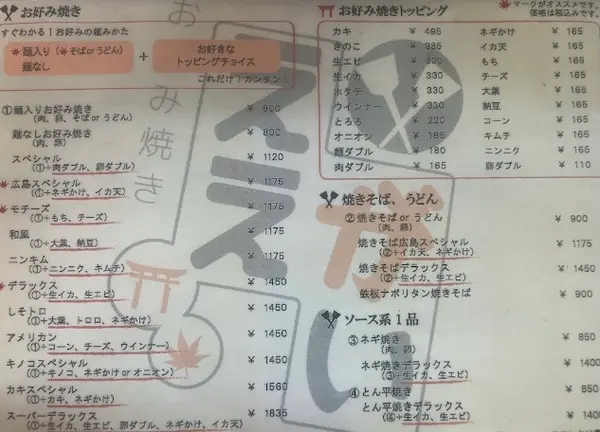 お好み焼き
すぐわかる！お好みの組みかた
麺入り（そばorうどん）
麺なし
+
お好きな
トッピングチョイス
これだけ！カンタン！
①麺入りお好み焼き ¥ 900
（肉、卵、そば or うどん）
麺なしお好み焼き ¥ 800
（肉、卵）
スペシャル ¥ 1120
（①＋肉ダブル、卵ダブル）
広島スペシャル ¥ 1175
（①＋ネギかけ、イカ天）
モチーズ ¥ 1175
（①＋もち、チーズ）
和風 ¥ 1175
（①＋大葉、納豆）
ニンキム ¥ 1175
（①＋ニンニク、キムチ）
デラックス ¥ 1450
（①＋生イカ、生エビ）
しそトロ ¥ 1450
（①＋大葉、トロロ、ネギかけ）
アメリカン ¥ 1450
（①＋コーン、チーズ、ウインナー）
キノコスペシャル ¥ 1450
（①＋キノコ、ネギかけ or オニオン）
カキスペシャル ¥ 1560
（①＋カキ、ネギかけ）
スーパーデラックス ¥ 1835
（①＋生イカ、生エビ、卵ダブル、ネギかけ、イカ天）
お好み焼き
マークがオススメです。
価格は税込みです。
お好み焼きトッピング
カキ ¥ 495 ネギかけ ¥ 165
きのこ ¥ 385 イカ天 ¥ 165
生エビ ¥ 330 もち ¥ 165
生イカ ¥ 330 チーズ ¥ 165
ホタテ ¥ 330 大葉 ¥ 165
ウインナー ¥ 330 納豆 ¥ 165
とろろ ¥ 220 コーン ¥ 165
オニオン ¥ 165 キムチ ¥ 165
麺ダブル ¥ 180 ニンニク ¥ 165
肉ダブル ¥ 165 卵ダブル ¥ 110
焼きそば、うどん
②焼きそば or うどん ¥ 900
（肉、卵）
焼きそば広島スペシャル ¥ 1175
（②＋イカ天、ネギかけ）
焼きそばデラックス ¥ 1450
（②＋生イカ、生エビ）
鉄板ナポリタン焼きそば ¥ 900
ソース系１品
③ネギ焼き ¥ 850
（肉、卵）
ネギ焼きデラックス ¥ 1400
（③＋生イカ、生エビ）
④とん平焼き ¥ 850
とん平焼きデラックス ¥ 140
（④＋生イカ、生エビ）